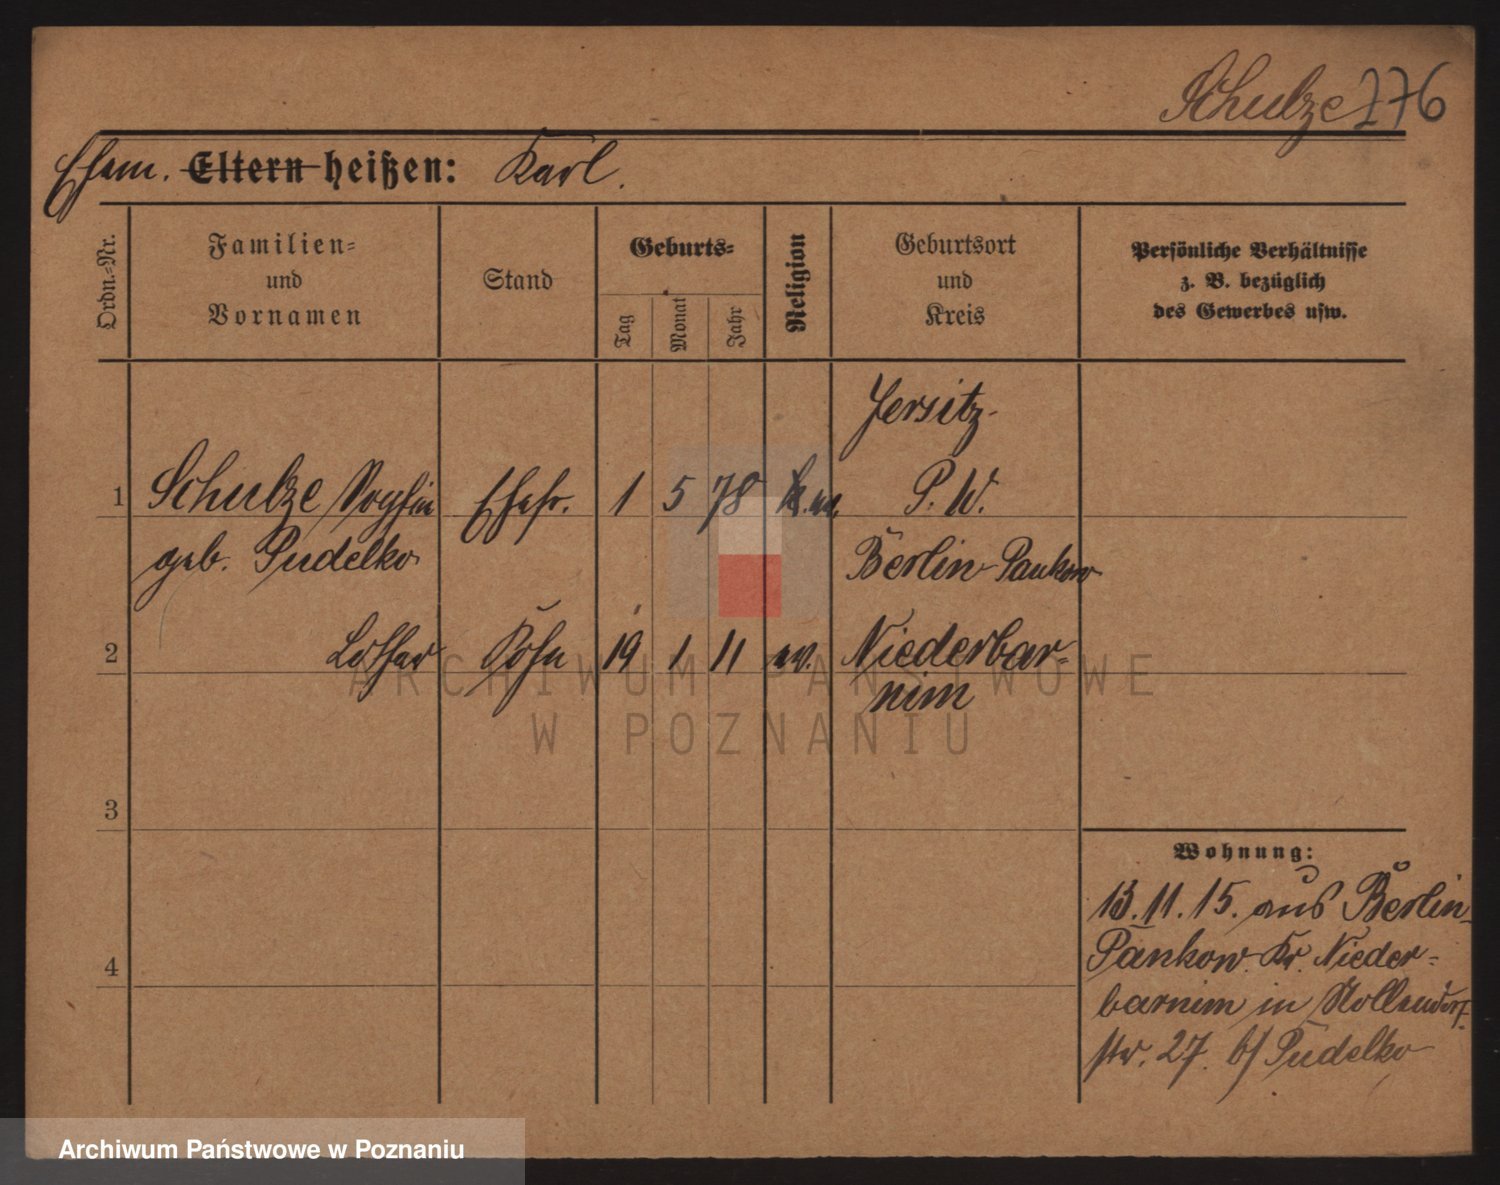 Schulze 276
Ehem. Eltern heißen: Karl.
Ordn.-Nr.
Familien-
und
Vornamen
Stand
Geburts-
Tag
Monat
Jahr
Religion
Geburtsort
und
Kreis
Persönliche Verhältnisse
z. B. bezüglich
des Gewerbes usw.
Jersitz
1 Schulze Sophie Ehefr. 1 5 78 P. W.
geb. Pudelko
Berlin-Pankow
2 Lothar Sohn 19 1 11 ev. Niederbar-
nim
3
4
Wohnung:
13.11.15. aus Berlin-
Pankow Kr. Nieder-
barnim in Nollendorf-
str. 27. b/ Pudelko
ARCHIWUM PAŃSTWOWE
W POZNANIU
Archiwum Państwowe w Poznaniu